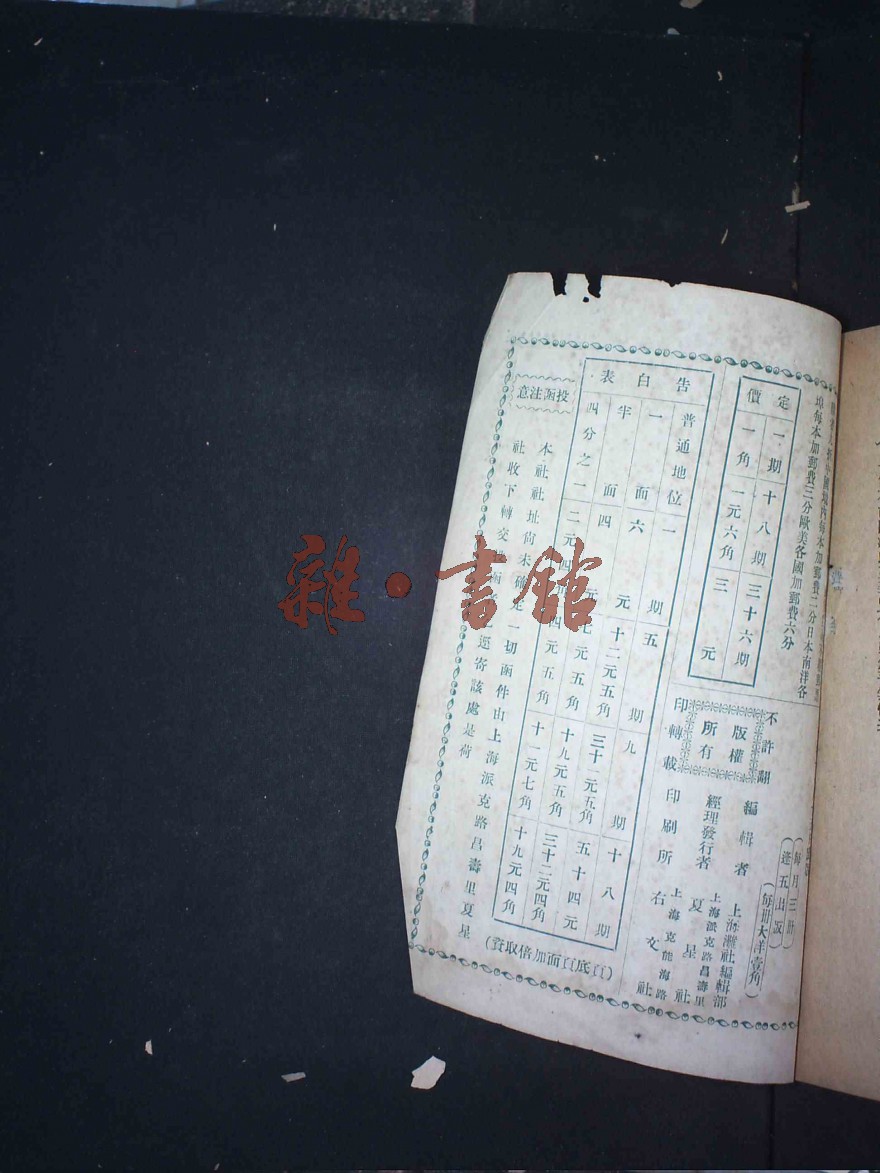 （每月三冊
逢五出版）
（每冊大洋壹角）
編輯者 上海灘社編輯部
經理發行者 上海派克路昌壽里 夏星社
印刷所 上海克能海路 右文社
不許翻
版權
所有
印轉載
埠每本加郵費三分歐美各國加郵費六分
定價
一期 十八期 三十六期
一角 一元六角 三元
告白表
普通地位 一期 五期 九期 十八期
一面 六元 十二元五角 三十一元五角 五十四元
半面 四元 七元五角 十九元五角 三十二元四角
四分之一 二元四角 四元五角 十一元七角 十九元四角
（頁底頁面加倍取費）
投函注意
本社社址尚未確定一切函件由上海派克路昌壽里夏星
社收下轉交 逕寄該處是荷
雜·書館